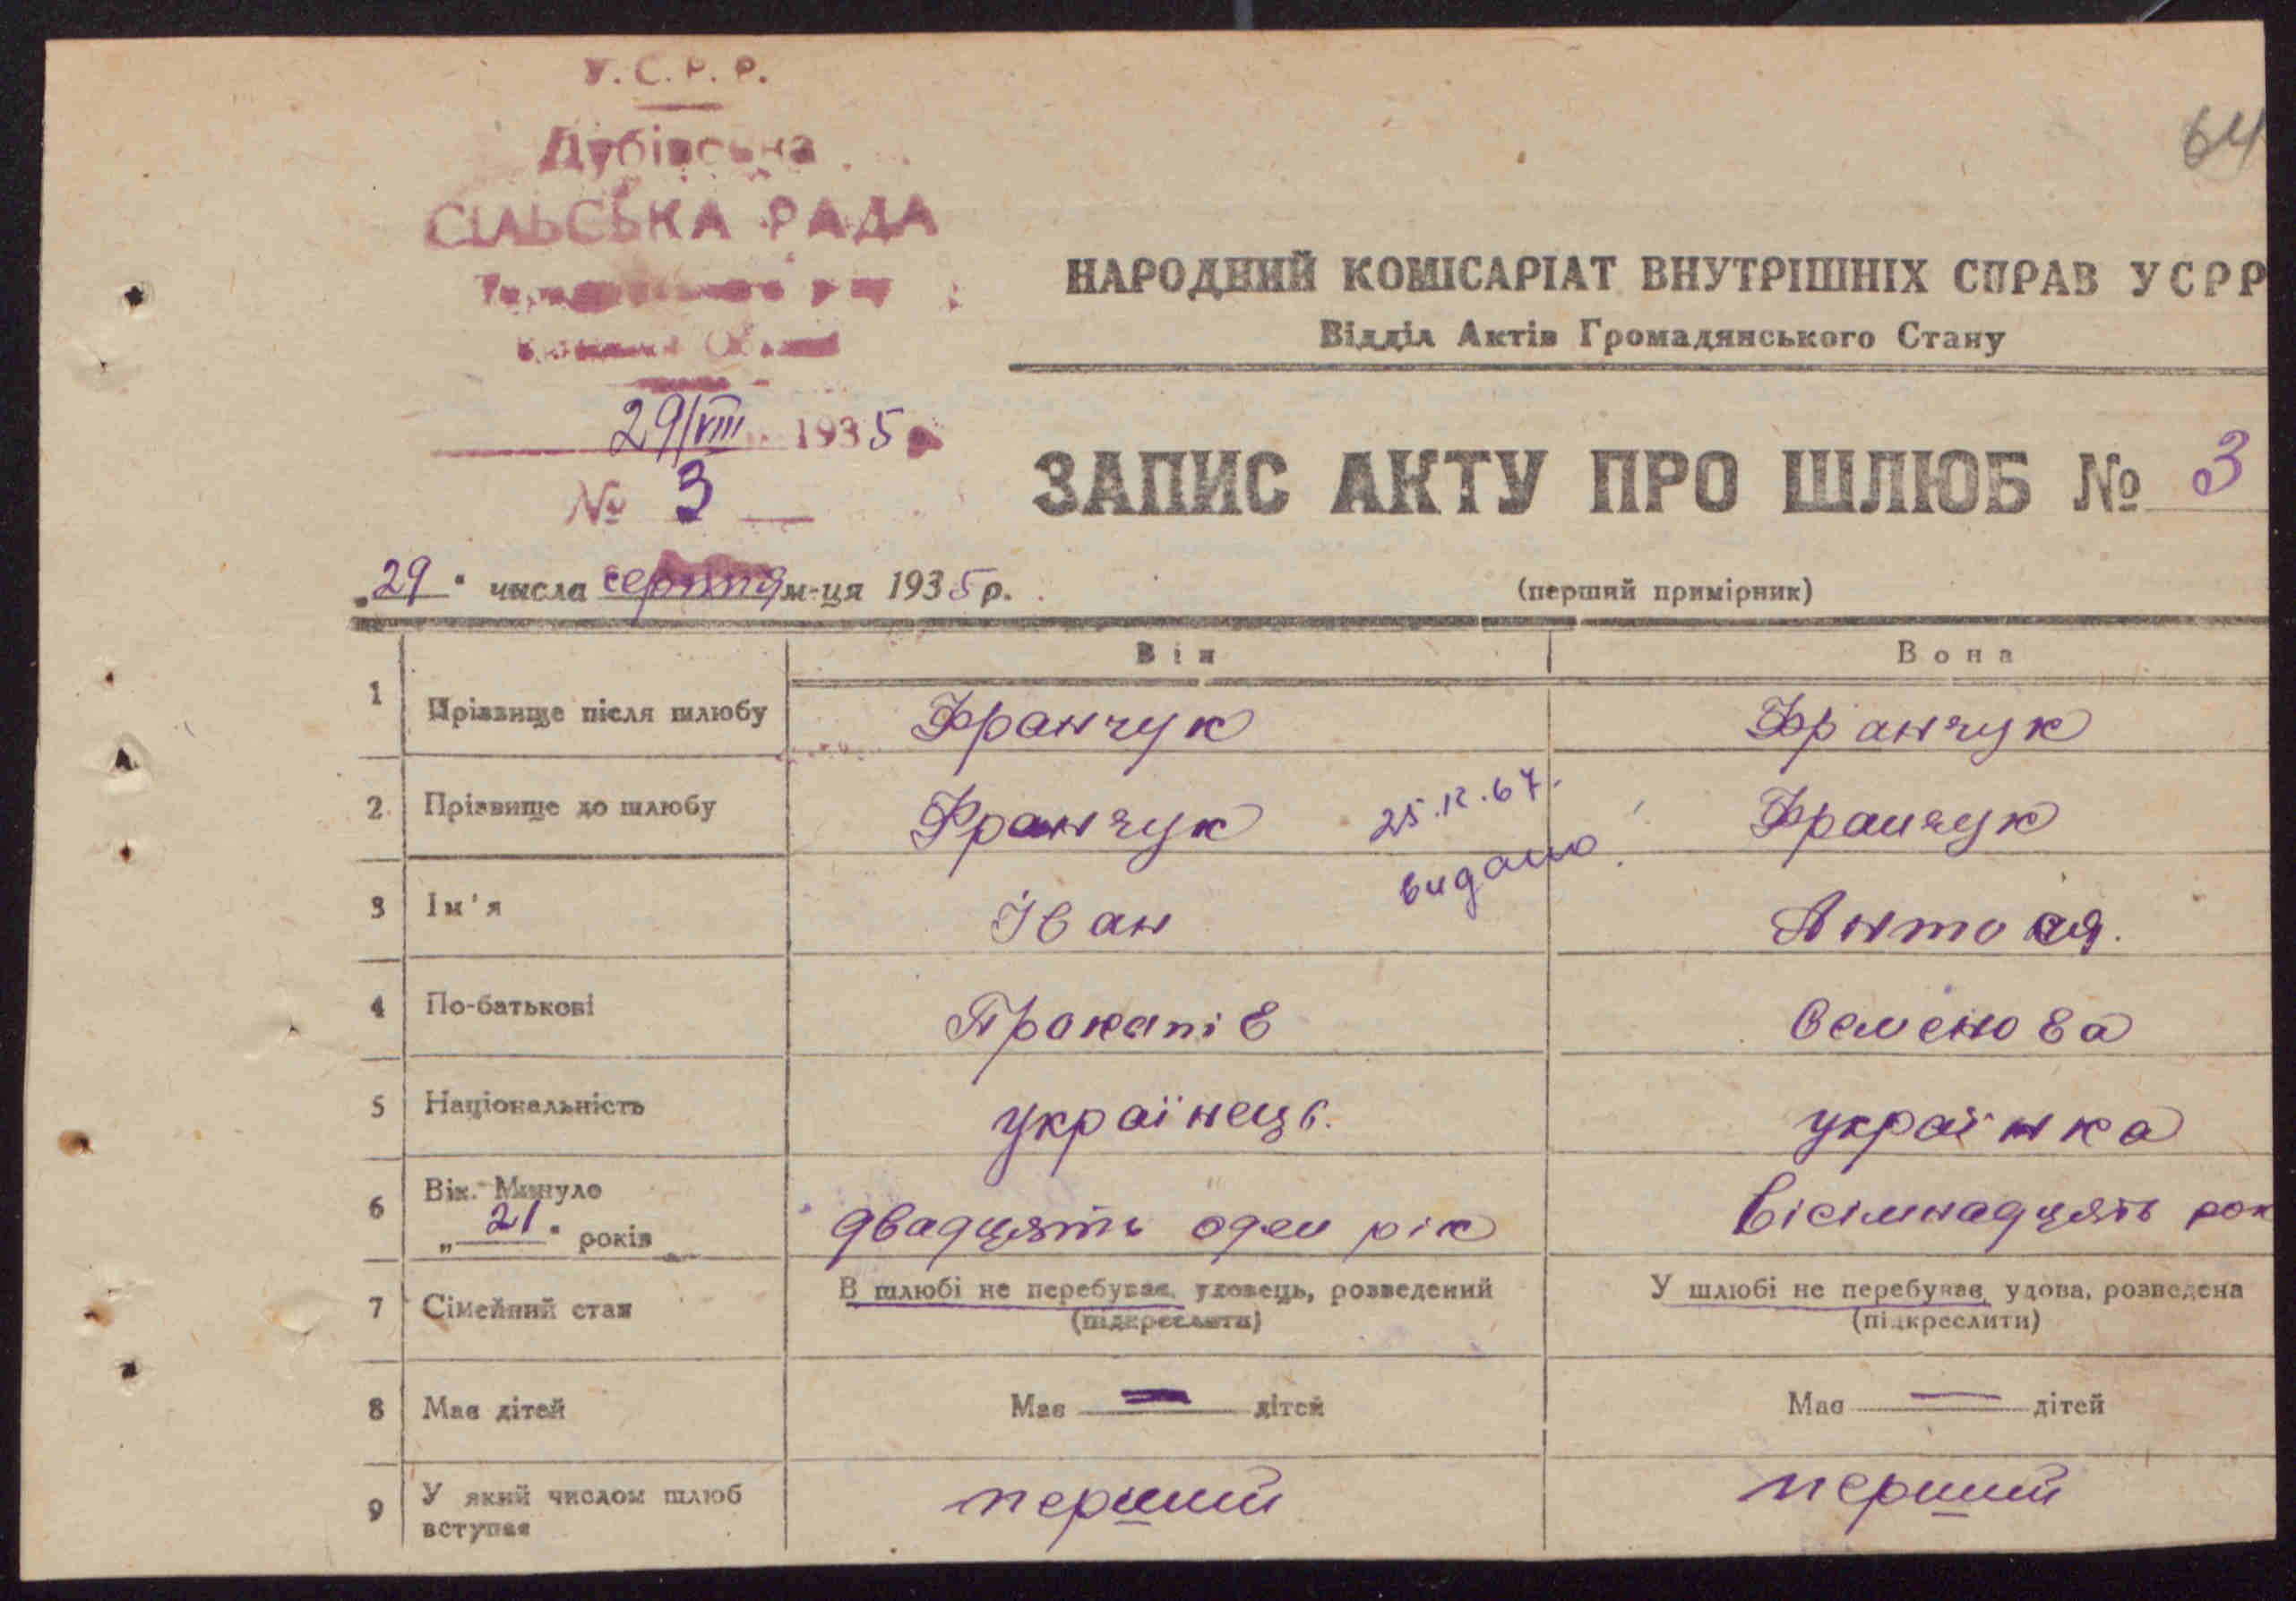 У.С.Р.Р.
Дубівська
СІЛЬСЬКА РАДА
29/VIII 1935
№ 3
64
НАРОДНИЙ КОМІСАРІАТ ВНУТРІШНІХ СПРАВ УСРР
Відділ Актів Громадянського Стану
ЗАПИС АКТУ ПРО ШЛЮБ № 3
„29“ числа серпня м-ця 1935 р.
(перший примірник)
Він Вона
1 Прізвище після шлюбу Франчук Франчук
2 Прізвище до шлюбу Франчук Франчук
25.IX.67.
видано
3 Ім'я Іван Антося.
4 По-батькові Прокопів Семенова
5 Національність українець. українка
6 Вік. Минуло „21“ років двадцять оден рік вісімнадцять рок
7 Сімейний стан В шлюбі не перебував, удовець, розведений У шлюбі не перебував, удова, розведена
(підкреслити) (підкреслити)
8 Має дітей Має — дітей Має — дітей
9 У який числом шлюб перший перший
вступає